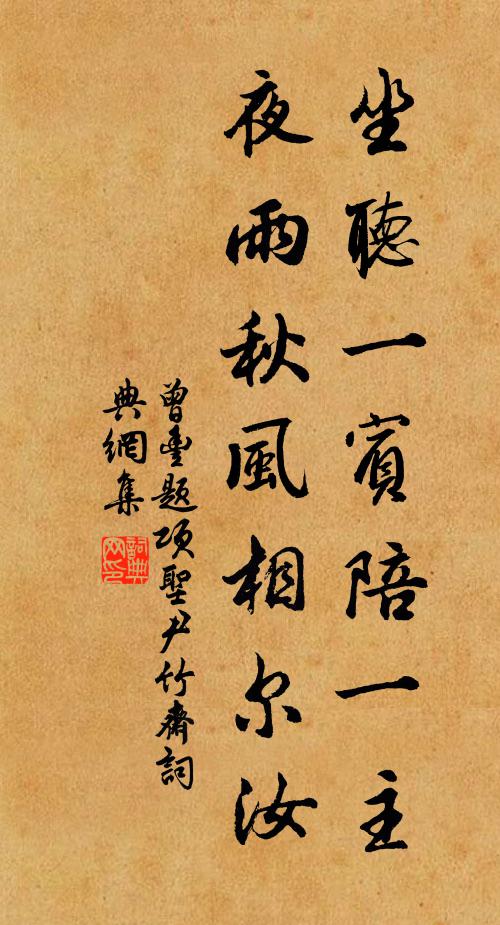 坐聽一賓陪一主
夜雨秋風相尔汝
曾豐題項聖尹竹齋詞
典網集
詞典
网印